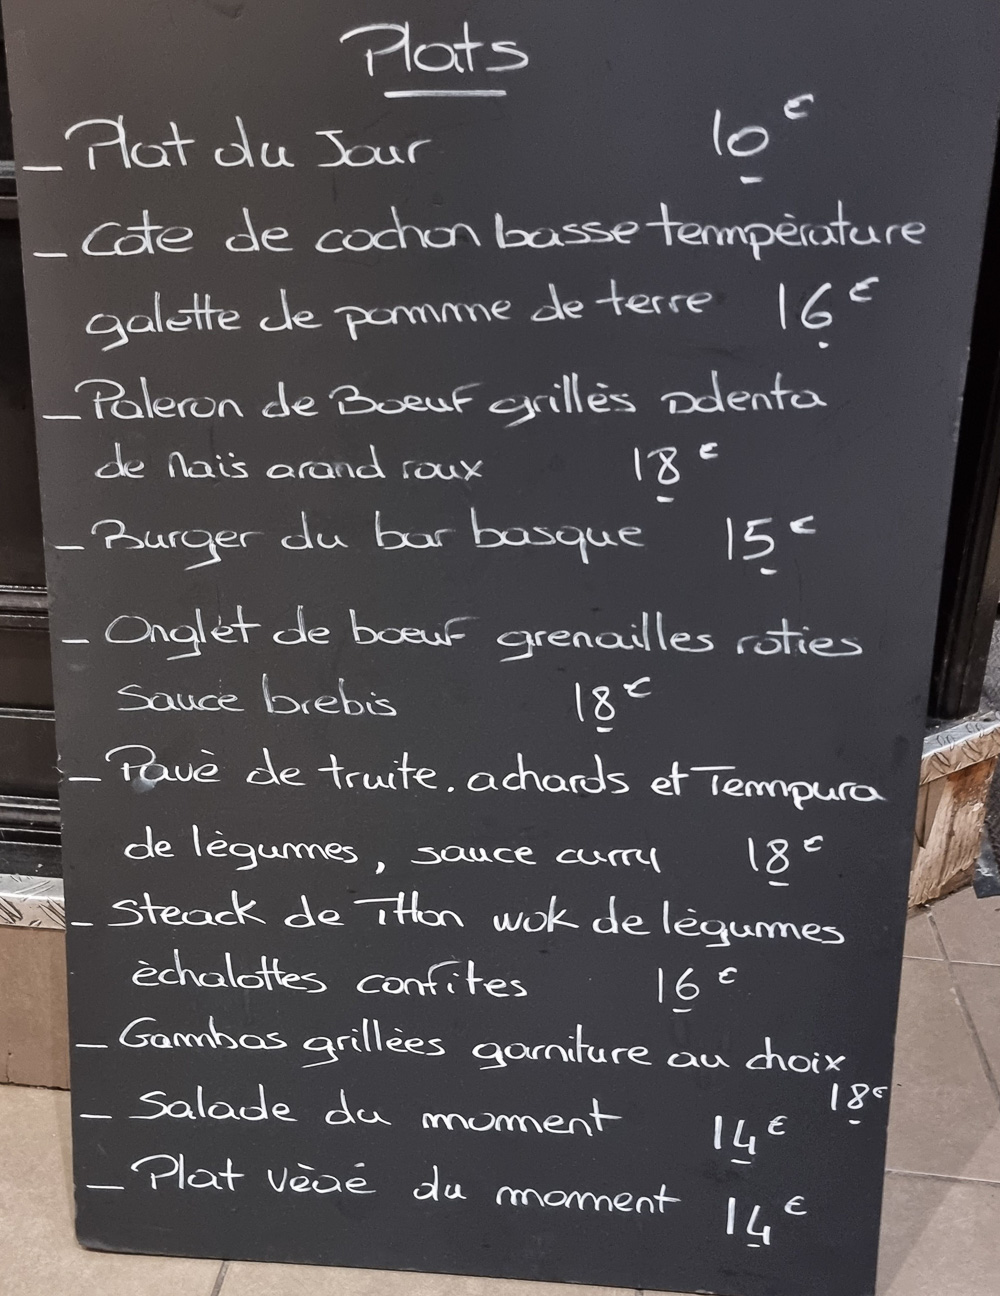 Plats
- Plat du Jour 10€
- Cote de cochon basse tempèrature
galette de pomme de terre 16€
- Paleron de Boeuf grillès
de Maïs grand roux 18€
- Burger du bar basque 15€
- Onglet de boeuf grenailles roties
Sauce brebis 18€
- Pavè de truite. achards et Tempura
de lègumes, sauce curry 18€
- Steack de THon wok de lègumes
èchalottes confites 16€
- Gambas grillèes garniture au choix
18€
- Salade du moment 14€
- Plat vègé du moment 14€